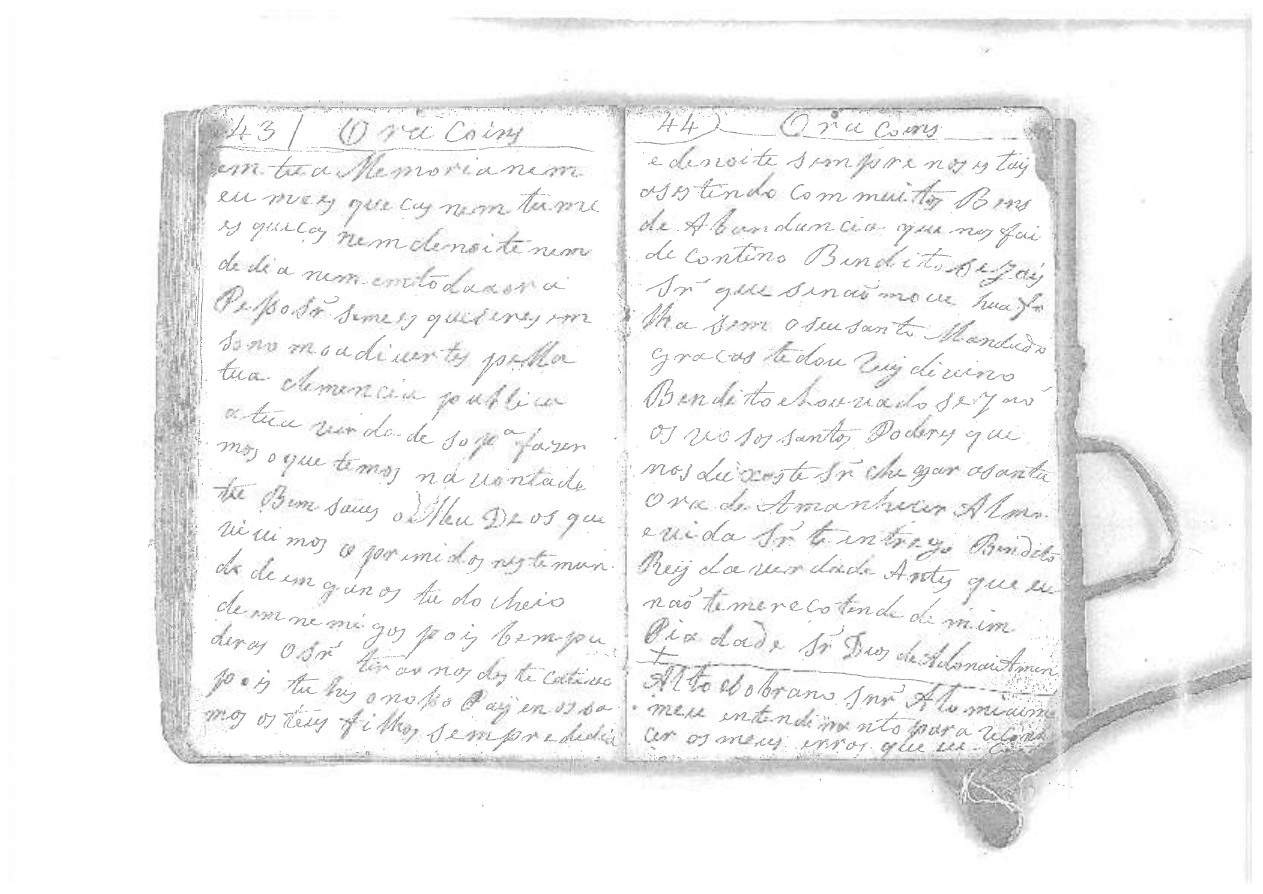 43 | Ora Coins
em tua Memoria nem
eu mees que cas nem tu me
es quecas nem denoite nem
de dia nem em toda a ora
Peço Sr̃ se mees queseres em
sono mo adivertes pella
tua clemencia publica
a tua verdade so pª fazer
mos o que temos na vontade
tu Bem saves o Meu Deos que
vivimos oprimidos neste mun
do de em ganos tudo cheio
de em nemigos pois bem pu
deras o Sr̃ tirar nos deste cativo
pois tu hes onoso Pay e nos so
mos os teus filhos sempre dedia
44) Ora Coins
e denoite sempre nos estas
asestendo com muitos Bens
de Abundancia que nos fai
de contino Bendito sezais
Sr̃ que senaõ move hua fo
lha sem o seu santo Mandado
gracas te dou Reij divino
Bendito e louvado sezaõ
os vosos santos Poderes que
nos deixaste Sr̃ chegar a santa
ora de Amanhecer Alma
e vida Sr̃ te entrego Bendito
Reij da verdade Antes que eu
naõ te mereco tende de mim
Piadade Sr̃ Dios de Adonai Amen
Alto Sobrano Snr̃ Alomiaime
meu entendimento para
cer os meus erros que eu